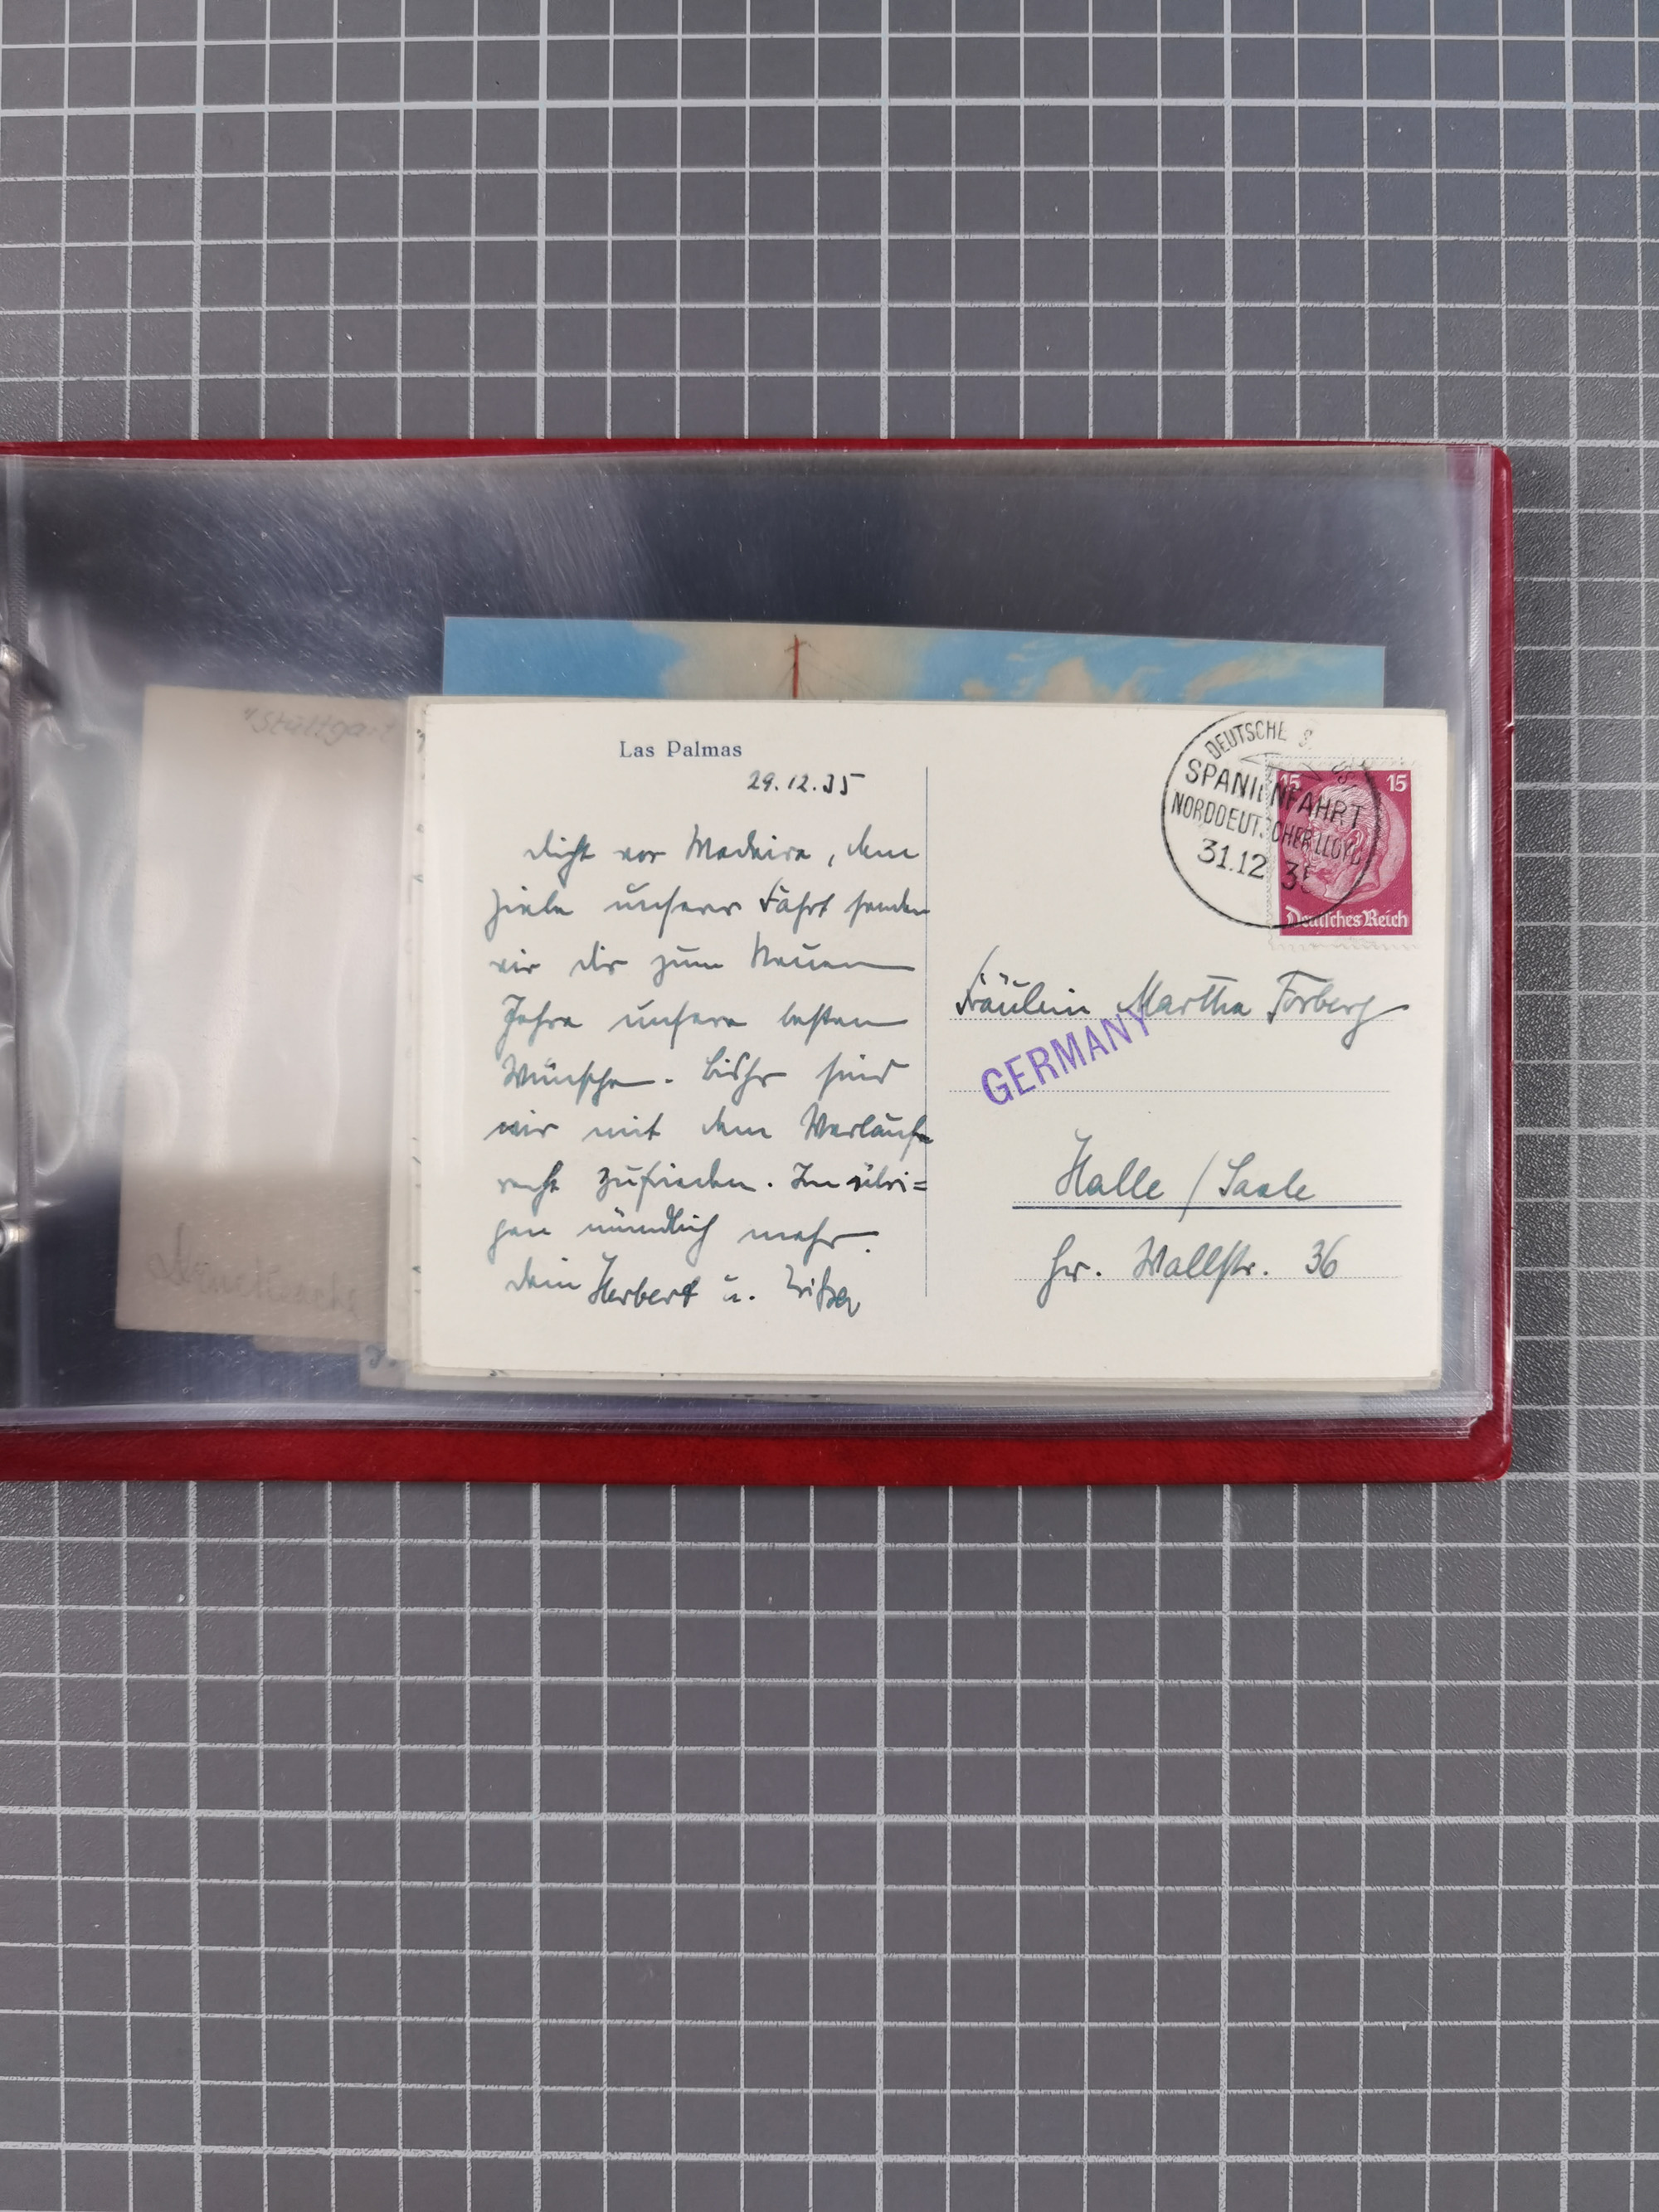 "Stuttgart
Las Palmas
29.12.35
Dicht vor Madeira, dem
Ziele unserer Fahrt senden
wir dir zum Neuen
Jahre unsere besten
Wünsche. Bisher sind
wir mit dem Verlaufe
recht zufrieden. Im übri=
gen mündlich mehr.
Dein Herbert u.
DEUTSCHE S
SPANIENFAHRT
NORDDEUTSCHER LLOYD
31.12 35
15 15
Deutsches Reich
Fräulein Martha Forberg
GERMANY
Halle / Saale
Gr. Wallstr. 36